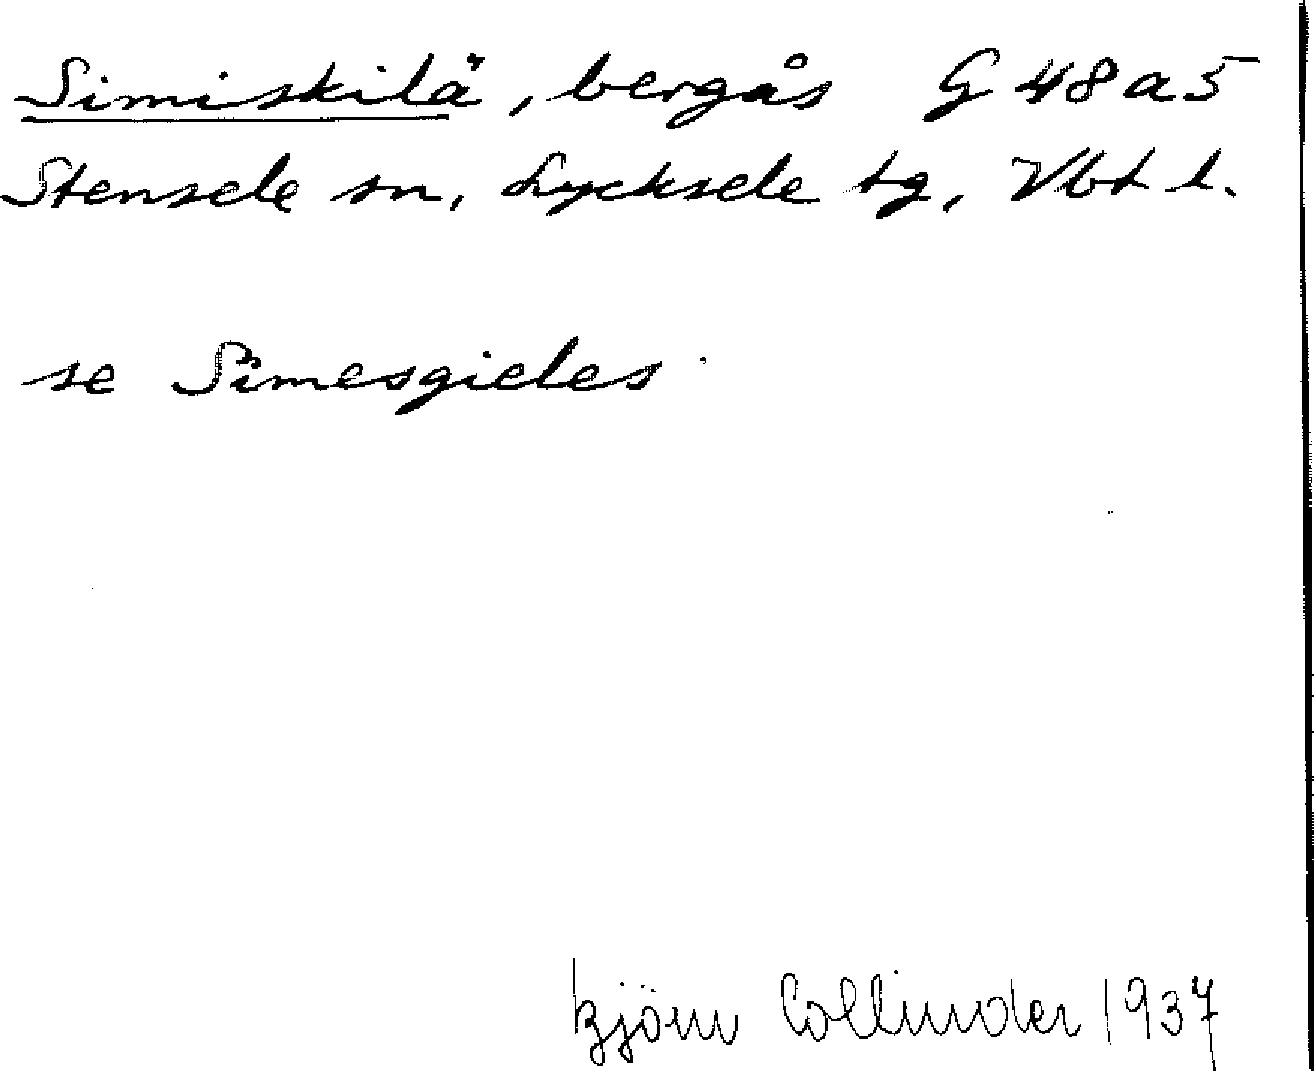 Simiskilä, bergås G 48 a 5
Stensele sn, Lycksele tg, Vbt l.
se Simesgieles
Björn Collinder 1937